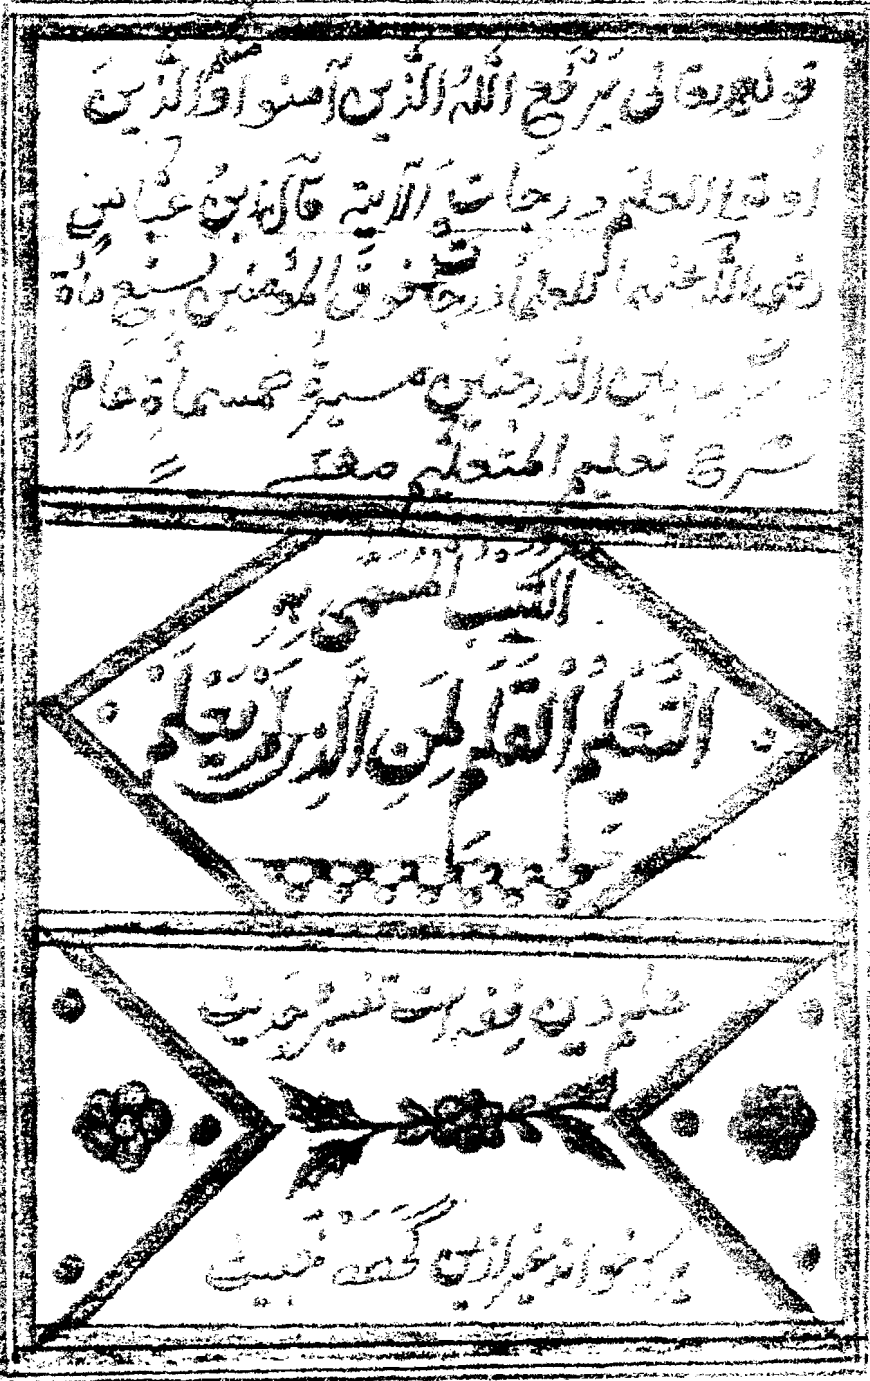 قوله تعالى يَرْفَعِ اللّٰهُ الَّذِينَ آمنوا وَالَّذِينَ
أُوتوا العلم درجاتٍ الآية قال ابنُ عبّاسٍ
رضي الله عنهما للعلماء درجات فوق المؤمنين بسبع مأة
درجة بين الدرجتين مسيرة خمسمأة عام
شرح تعليم المتعلّم
الكتب المُسَمّى بِهِ
التَّعَلُّمُ الْقَلَم لِمَنِ الَّذِى لَمْ يَعْلَمْ
علم دين فقه است تفسير وحديث
هركه خواند غير ازين گردد خبيث